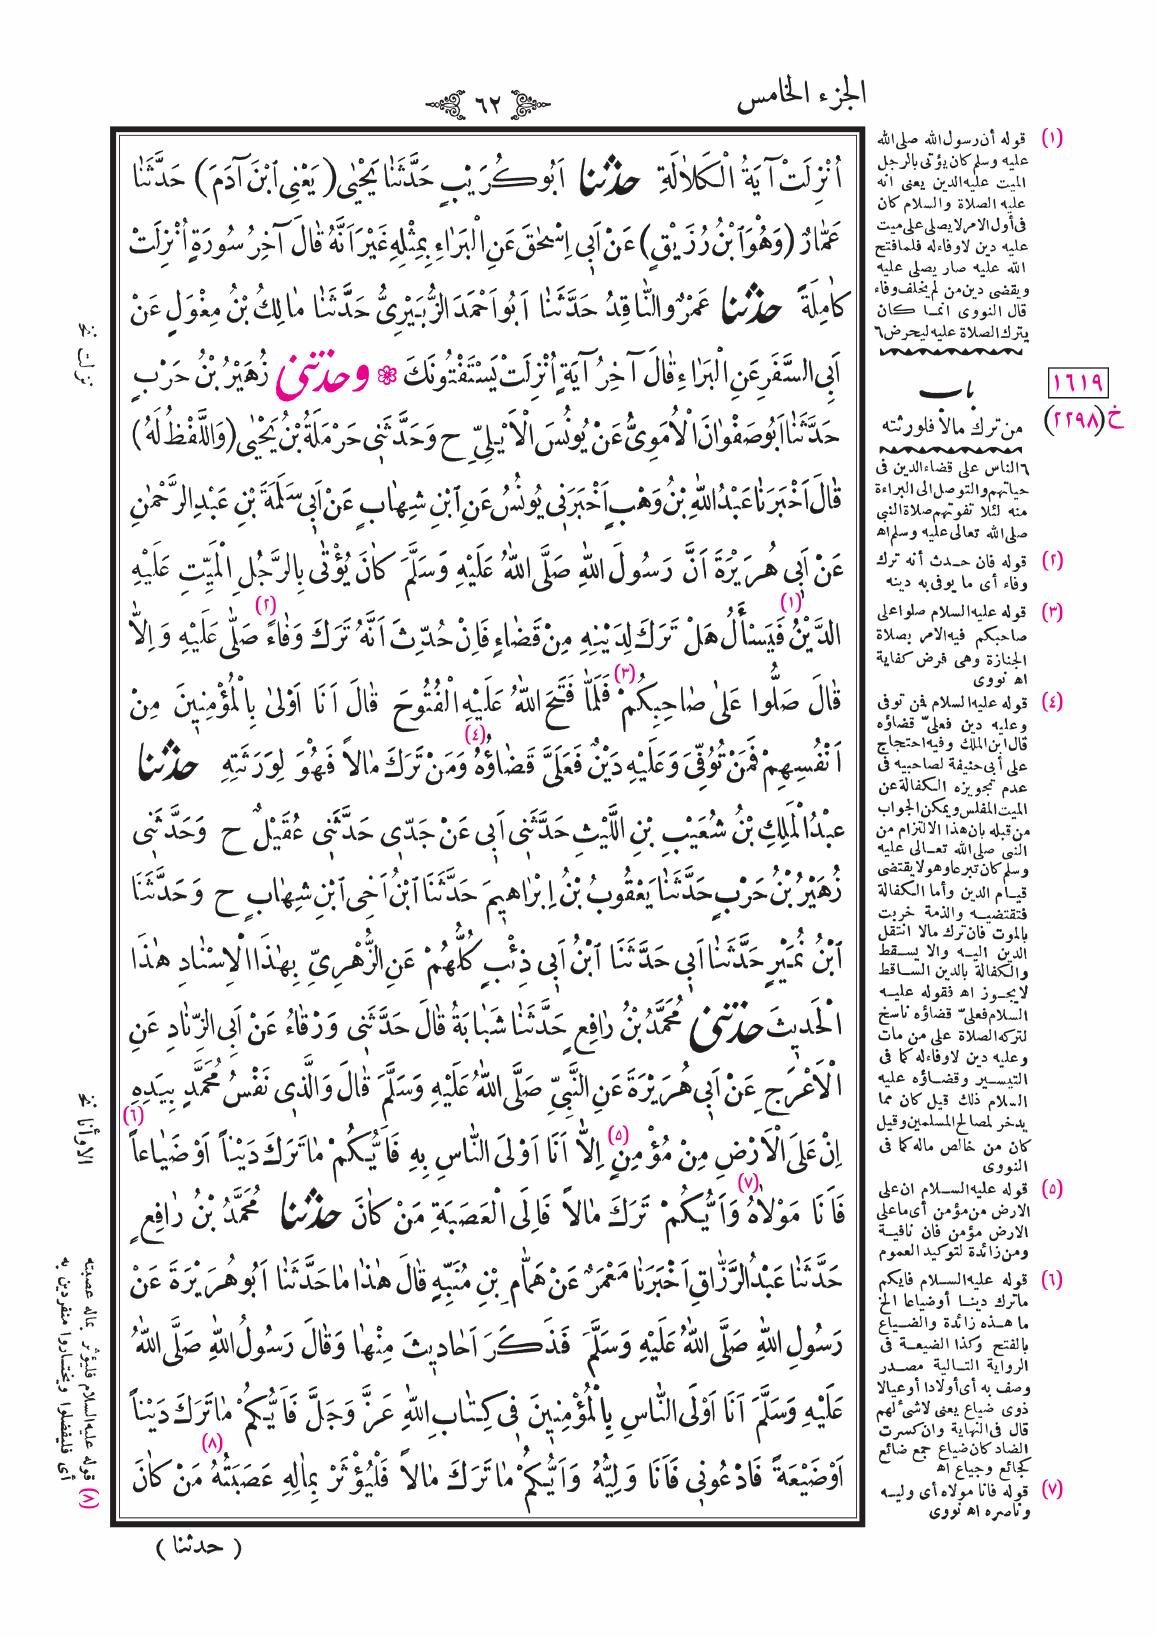 الجزء الخامس
٦٢
اُنْزِلَتْ آيَةُ الْكَلاٰلَةِ حدثنا اَبُو كُرَيْبٍ حَدَّثَنٰا يَحْيٰى (يَعْنِى ابْنَ آدَمَ) حَدَّثَنٰا
عَمّٰارٌ (وَهُوَ ابْنُ رُزَيْقٍ) عَنْ اَبِى اِسْحٰقَ عَنِ الْبَرٰاءِ بِمِثْلِهِ غَيْرَ اَنَّهُ قٰالَ آخِرُ سُورَةٍ اُنْزِلَتْ
كٰامِلَةً حدثنا عَمْرٌو النّٰاقِدُ حَدَّثَنٰا اَبُو اَحْمَدَ الزُّبَيْرِىُّ حَدَّثَنٰا مٰالِكُ بْنُ مِغْوَلٍ عَنْ
اَبِى السَّفَرِ عَنِ الْبَرٰاءِ قٰالَ آخِرُ آيَةٍ اُنْزِلَتْ يَسْتَفْتُونَكَ ۞ وحدثنى زُهَيْرُ بْنُ حَرْبٍ
حَدَّثَنٰا اَبُو صَفْوٰانَ الْاُمَوِىُّ عَنْ يُونُسَ الْاَيْلِىِّ ح وَحَدَّثَنِى حَرْمَلَةُ بْنُ يَحْيٰى (وَاللَّفْظُ لَهُ)
قٰالَ اَخْبَرَنٰا عَبْدُ اللهِ بْنُ وَهْبٍ اَخْبَرَنِى يُونُسُ عَنِ ابْنِ شِهٰابٍ عَنْ اَبِى سَلَمَةَ بْنِ عَبْدِ الرَّحْمٰنِ
عَنْ اَبِى هُرَيْرَةَ اَنَّ رَسُولَ اللهِ صَلَّى اللهُ عَلَيْهِ وَسَلَّمَ كٰانَ يُؤْتٰى بِالرَّجُلِ الْمَيِّتِ عَلَيْهِ
الدَّيْنُ (١) فَيَسْأَلُ هَلْ تَرَكَ لِدَيْنِهِ مِنْ قَضٰاءٍ فَاِنْ حُدِّثَ اَنَّهُ تَرَكَ وَفٰاءً (٢) صَلّٰى عَلَيْهِ وَاِلاّٰ
قٰالَ صَلُّوا عَلىٰ صٰاحِبِكُمْ (٣) فَلَمّٰا فَتَحَ اللهُ عَلَيْهِ الْفُتُوحَ قٰالَ اَنَا اَوْلىٰ بِالْمُؤْمِنِينَ مِنْ
اَنْفُسِهِمْ فَمَنْ تُوُفِّىَ وَعَلَيْهِ دَيْنٌ فَعَلَىَّ قَضٰاؤُهُ (٤) وَمَنْ تَرَكَ مٰالاً فَهُوَ لِوَرَثَتِهِ حدثنا
عَبْدُ الْمَلِكِ بْنُ شُعَيْبِ بْنِ اللَّيْثِ حَدَّثَنِى اَبِى عَنْ جَدِّى حَدَّثَنِى عُقَيْلٌ ح وَحَدَّثَنِى
زُهَيْرُ بْنُ حَرْبٍ حَدَّثَنٰا يَعْقُوبُ بْنُ اِبْرٰاهِيمَ حَدَّثَنَا ابْنُ اَخِى ابْنِ شِهٰابٍ ح وَحَدَّثَنَا
ابْنُ نُمَيْرٍ حَدَّثَنٰا اَبِى حَدَّثَنَا ابْنُ اَبِى ذِئْبٍ كُلُّهُمْ عَنِ الزُّهْرِىِّ بِهٰذَا الْاِسْنٰادِ هٰذَا
الْحَدِيثَ حدثنى مُحَمَّدُ بْنُ رٰافِعٍ حَدَّثَنٰا شَبٰابَةُ قٰالَ حَدَّثَنِى وَرْقٰاءُ عَنْ اَبِى الزِّنٰادِ عَنِ
الْاَعْرَجِ عَنْ اَبِى هُرَيْرَةَ عَنِ النَّبِىِّ صَلَّى اللهُ عَلَيْهِ وَسَلَّمَ قٰالَ وَالَّذِى نَفْسُ مُحَمَّدٍ بِيَدِهِ
اِنْ عَلَى الْاَرْضِ مِنْ مُؤْمِنٍ (٥) اِلاّٰ اَنَا اَوْلَى النّٰاسِ بِهِ فَاَيُّكُمْ مٰا تَرَكَ دَيْناً اَوْ ضَيٰاعاً (٦)
فَاَنَا مَوْلاٰهُ (٧) وَاَيُّكُمْ تَرَكَ مٰالاً فَاِلَى الْعَصَبَةِ مَنْ كٰانَ حدثنا مُحَمَّدُ بْنُ رٰافِعٍ
حَدَّثَنٰا عَبْدُ الرَّزّٰاقِ اَخْبَرَنٰا مَعْمَرٌ عَنْ هَمّٰامِ بْنِ مُنَبِّهٍ قٰالَ هٰذٰا مٰا حَدَّثَنٰا اَبُو هُرَيْرَةَ عَنْ
رَسُولِ اللهِ صَلَّى اللهُ عَلَيْهِ وَسَلَّمَ فَذَكَرَ اَحٰادِيثَ مِنْهٰا وَقٰالَ رَسُولُ اللهِ صَلَّى اللهُ
عَلَيْهِ وَسَلَّمَ اَنَا اَوْلَى النّٰاسِ بِالْمُؤْمِنِينَ فِى كِتٰابِ اللهِ عَزَّ وَجَلَّ فَاَيُّكُمْ مٰا تَرَكَ دَيْناً
اَوْ ضَيْعَةً فَادْعُونِى فَاَنَا وَلِيُّهُ وَاَيُّكُمْ مٰا تَرَكَ مٰالاً فَلْيُؤْثَرْ (٨) بِمٰالِهِ عَصَبَتُهُ مَنْ كٰانَ
( حدثنا )
(١) قوله أن رسول الله صلى الله
عليه وسلم كان يؤتى بالرجل
الميت عليه الدين يعنى انه
عليه الصلاة والسلام كان
فى أول الامر لا يصلى على ميت
عليه دين لا وفاء له فلما فتح
الله عليه صار يصلى عليه
ويقضى دين من لم يخلف وفاء
قال النووى انمـا كان
يترك الصلاة عليه ليحرض ٦
باب
من ترك مالا فلورثته
١٦١٩
خ (٢٢٩٨)
٦ الناس على قضاء الدين فى
حياتهم والتوصل الى البراءة
منه لئلا تفوتهم صلاة النبى
صلى الله تعالى عليه وسلم اه
(٢) قوله فان حدث أنه ترك
وفاء أى ما يوفى به دينه
(٣) قوله عليه السلام صلوا على
صاحبكم فيه الامر بصلاة
الجنازة وهى فرض كفاية
اه نووى
(٤) قوله عليه السلام فمن توفى
وعليه دين فعلىّ قضاؤه
قال ابن الملك وفيه احتجاج
على أبى حنيفة لصاحبيه فى
عدم تجويزه الكفالة عن
الميت المفلس ويمكن الجواب
من قبله بان هذا الالتزام من
النبى صلى الله تعالى عليه
وسلم كان تبرعا وهو لا يقتضى
قيام الدين وأما الكفالة
فتقتضيه والذمة خربت
بالموت فان ترك مالا انتقل
الدين اليه والا يسقط
والكفالة بالدين الساقط
لا يجوز اه فقوله عليه
السلام فعلىّ قضاؤه ناسخ
لتركه الصلاة على من مات
وعليه دين لا وفاء له كما فى
التيسير وقضاؤه عليه
السلام ذلك قيل كان مما
يدخر لمصالح المسلمين وقيل
كان من خالص ماله كما فى
النووى
(٥) قوله عليه السلام ان على
الارض من مؤمن أى ما على
الارض مؤمن فان نافية
ومن زائدة لتوكيد العموم
(٦) قوله عليه السلام فايكم
ما ترك دينا أوضياعا الخ
ما هذه زائدة والضياع
بالفتح وكذا الضيعة فى
الرواية التالية مصدر
وصف به أى أولادا أوعيالا
ذوى ضياع يعنى لا شئ لهم
قال فى النهاية وان كسرت
الضاد كان ضياع جمع ضائع
كجائع وجياع اه
(٧) قوله فانا مولاه أى وليه
وناصره اه نووى
نزلت نخ
الا وأنا نخ
(٨) قوله عليه السلام فليؤثر بماله عصبته
أى فليفضلوا ويختاروا منفردين به